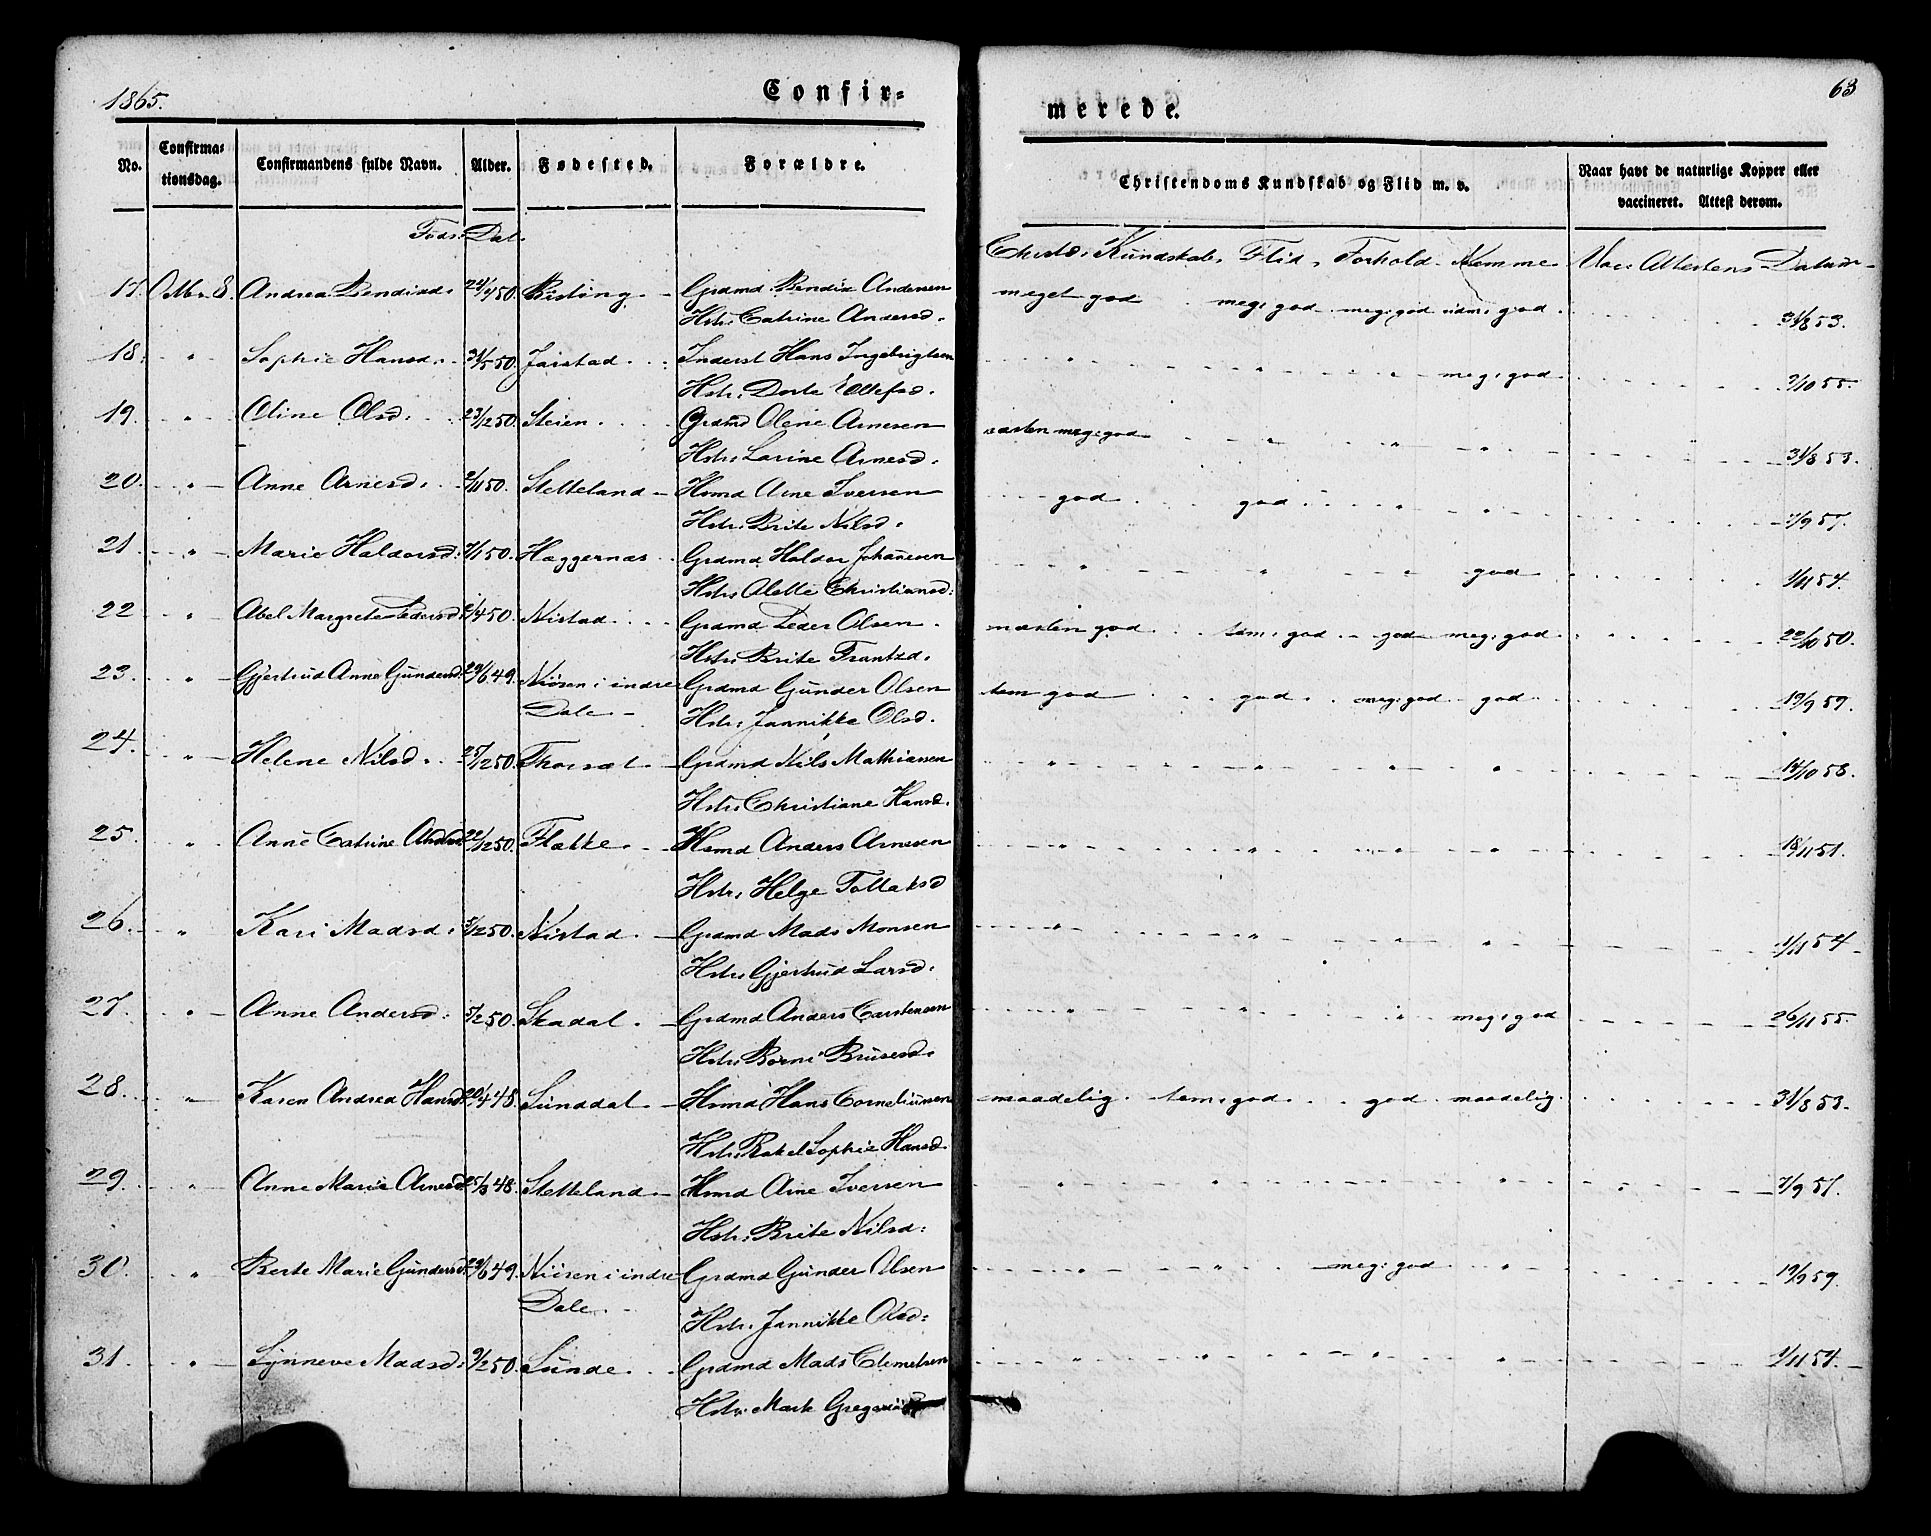 1865.
Confir-
merede.
63
No.
Confirma-
tionsdag.
Confirmandens fulde Navn.
Alder.
Fødested.
Forældre.
Christendoms Kundskab og Flid m. v.
Naar havt de naturlige Kopper eller
vaccineret. Attest derom.
Føds. Dat.
Christd: Kundskab, Flid, Forhold, Nemme. Vac: Attestens Datum
17. Octbr 8. Andrea Bendixd: 24/4 50. Gdmd Bendix Andersen meget god meg: god meg: god udm: god 31/8 53.
Hstr: Catrine Andersd.
18. " Sophie Hansd: 31/5 50. Jaistad. Inderst Hans Ingebrigtsen " " " meg: god 2/10 55.
Hstr: Dorte Ellefsd.
19. " Oline Olsd: 23/2 50. Steien. Grdmd Olene Arnesen næsten meg: god " " " 31/8 53.
Hstr: Larine Arnesd.
20. " Anne Arnesd: 2/11 50. Stetteland Hsmd Arne Iversen god god " " 7/9 57.
Hstr: Brite Nilsd:
21. " Marie Haldorsd: 7/1 50. Hæggernæs Grdmd Haldor Johannesen " " " god 1/11 54.
Hstr: Alette Christiansd:
22 " Abel Margrete Pedersd: 2/4 50. Nistad. Grdmd Peder Olsen næsten god tem: god god meg: god 22/10 50.
Hstr: Brite Frantzd.
23. " Gjertrud Anne Gundersd. 29/6 49. Niøsen i indre Grdmd Gunder Olsen tem god god meg: god god 19/9 59.
Dale. Hstr: Jannikke Olsd.
24. " Helene Nilsd. 25/12 50. Grdmd Nils Mathiasen " " " " 14/10 53.
Hstr: Christiane Hansd.
25. " Anne Catrine Andersd 22/12 50. Flække. Hsmd Anders Arnesen " " " " 18/11 51.
Hstr: Helge Tollaksd
26. " Kari Madsd: 3/2 50. Nistad. Grdmd Mads Monsen " " " " 1/11 54
Hstr: Gjertrud Larsd:
27. " Anne Andersd: 5/2 50. Skadal. Grdmd Anders Carstensen " " " meg: god 26/11 55.
Hstr: Børni Brusesd:
28. " Karen Andrea Hansd. 20/4 48. Sunddal Hsmd Hans Corneliussen maadelig. tem: god god maadelig 31/8 53.
Hstr: Rakel Sophie Hansd
29. " Anne Marie Arnesd. 25/3 48. Stetteland Hsmd Arne Iversen " " " " 7/9 57.
Hstr: Brite Nilsd:
30. " Berte Marie Gundersd. 29/6 49. Niøsen i indre Grdmd Gunder Olsen " " meg: god " 19/9 59.
Dale. Hstr: Jannikke Olsd:
31. " Synneve Madsd: 9/2 50. Sunde. Grdmd Mads Clemetsen " " " " 1/11 54.
Hstr: Marte